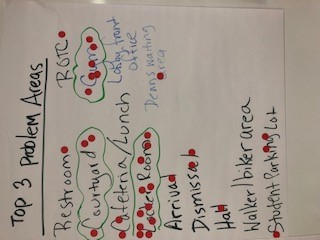 TOP 3 Problem Areas
Restroom
Courtyard
Cafeteria/Lunch
Locker Room
Arrival
Dismissal
Hall
Walker/biker area
Student Parking Lot
ROTC
Gym
Lobby front
office
Deans waiting
area